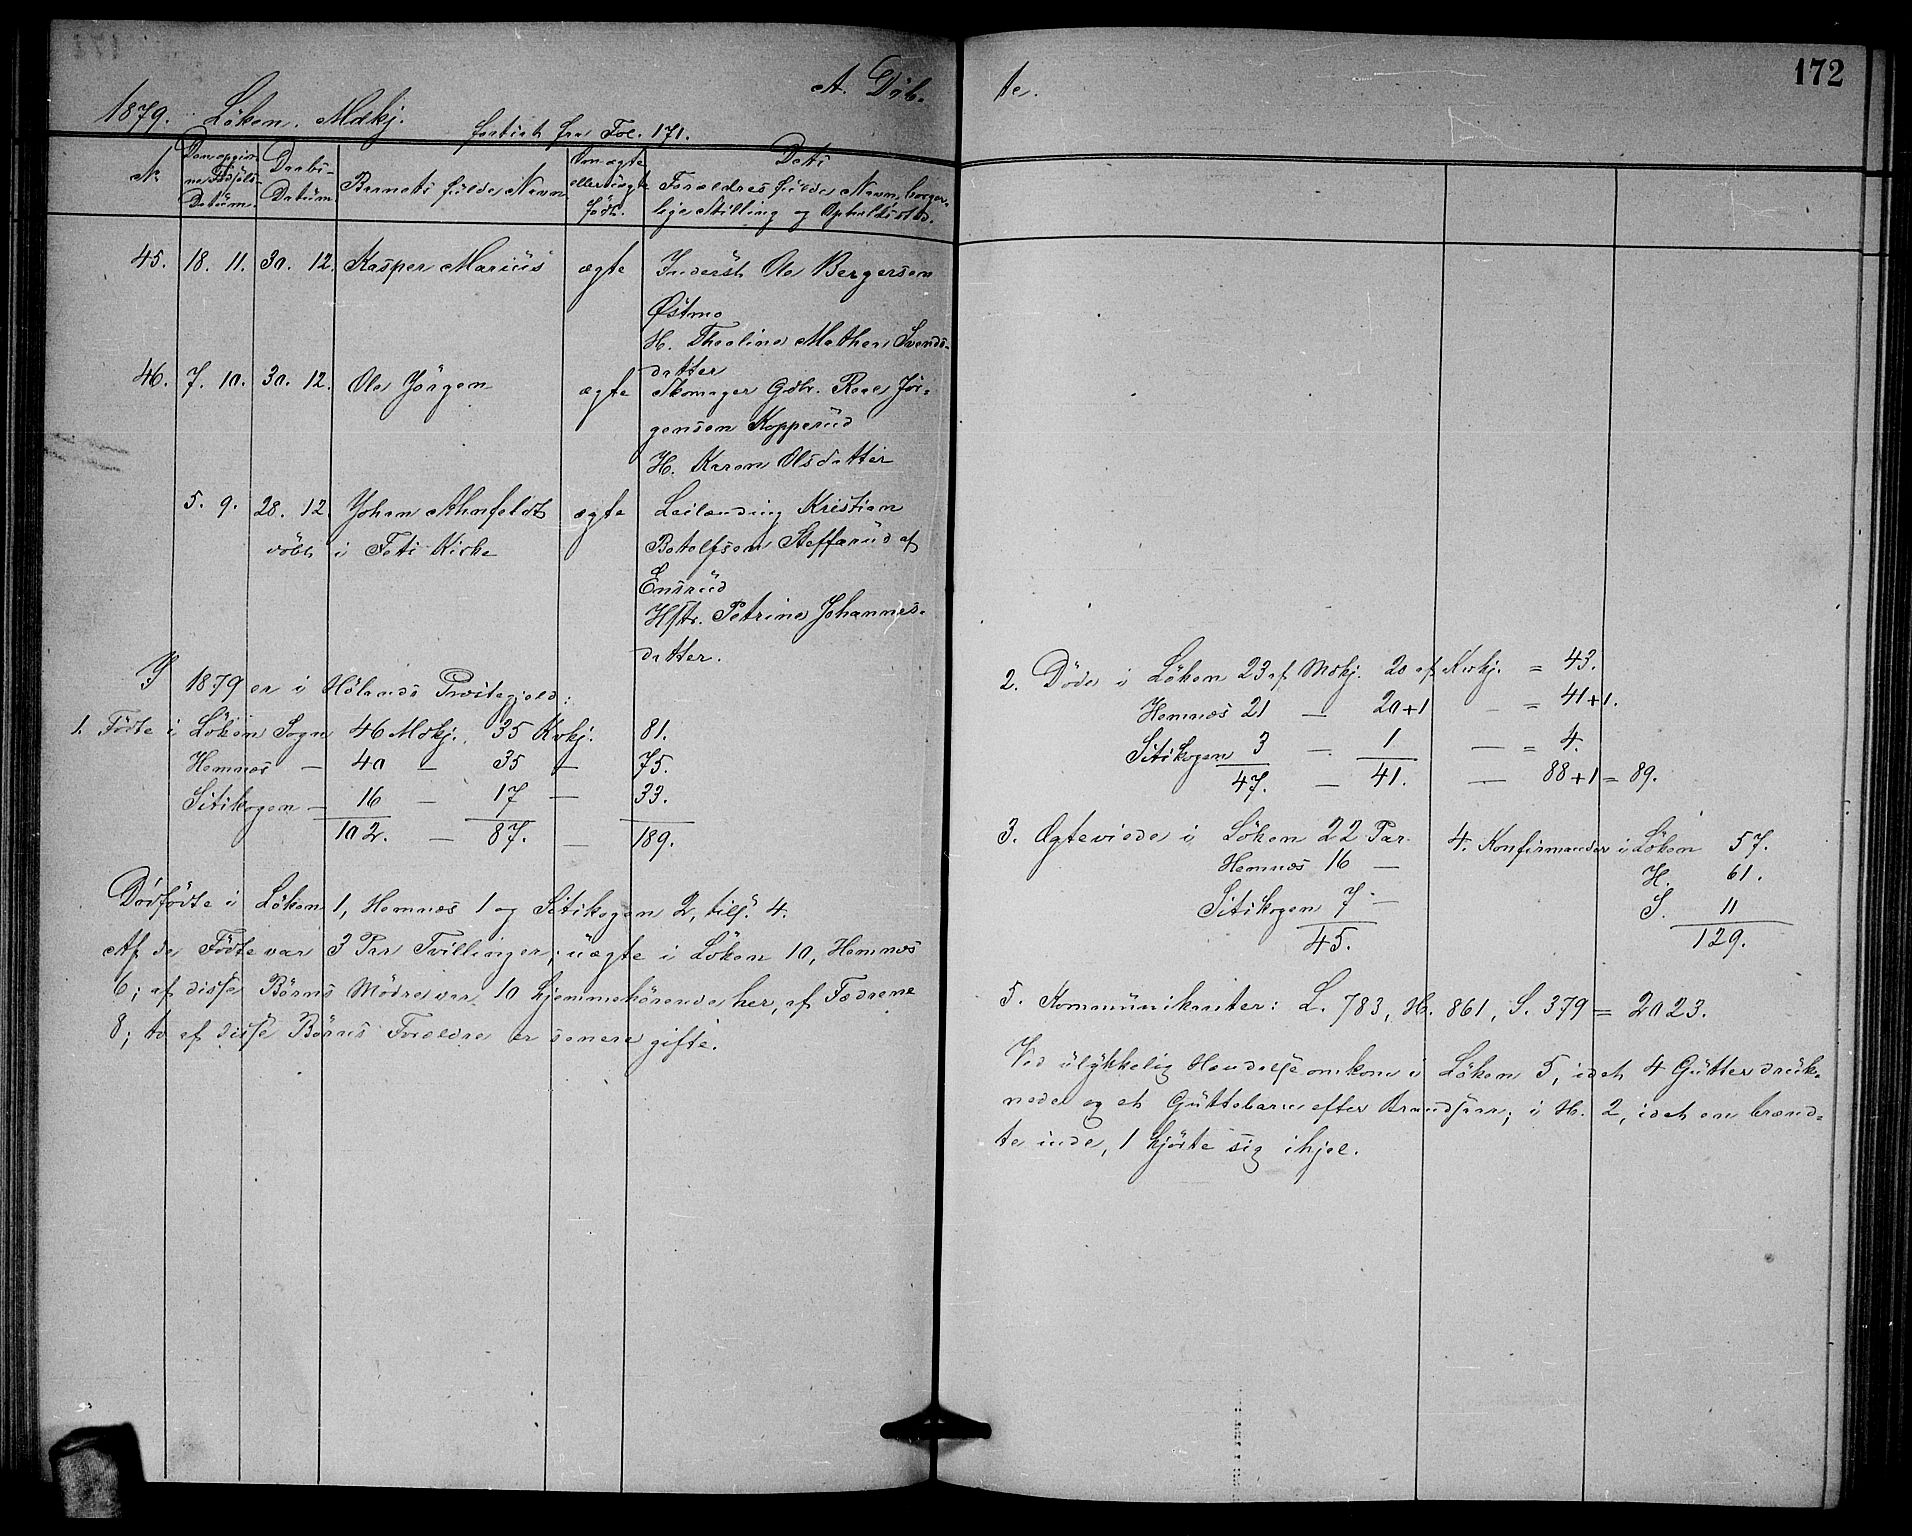 172
A. Döb- te.
1879. Löken. Mdkj. fortsat fra Fol. 171.
No Den opgivne Fødsels-Datum. Daabs-Datum. Barnets fulde Navn Om ægte eller uægte født. Dets Forældres fulde Navn, borgerlige Stilling og Opholdssted.
45. 18. 11. 30. 12. Kasper Marius ægte Inderst Ole Bergersen
Østmo
H. Thorline Mathea Svends-
datter
46. 7. 10. 30. 12. Ole Jörgen ægte Skomager Gbr. Roal Jör-
gensen Kopperud
H. Karen Olsdatter
5. 9. 28. 12. Johan Ahnfeldt ægte Leilænding Kristian
döbt i Fets Kirke Botolfsen Steffarud af
Ensrud
Hstr. Petrine Johannes-
datter.
I 1879 er i Hölands Præstegjeld:
1. Födte i Löken Sogn 46 Mdkj. 35 Kvkj. 81.
Hemnæs — 40 — 35 — 75.
Sitskogen — 16 — 17 — 33.
102. — 87. — 189.
Dödfödte i Löken 1, Hemnæs 1 og Sitskogen 2, tils. 4.
Af de Födte var 3 Par Tvillinger; uægte i Löken 10, Hemnæs
6; af disse Börns Mödre var 10 hjemmehörende her, af Fædrene
8; to af disse Börns Forældre er senere gifte.
2. Döde i Löken 23 af Mdkj. 20 af Kvkj. = 43.
Hemnæs 21 — 20+1 — = 41+1.
Sitskogen 3 — 1 — = 4.
47. — 41. — 88+1 = 89.
3. Ægteviede i Löken 22 Par.
Hemnæs 16 —
Sitskogen 7 —
45.
4. Konfirmander i Löken 57.
H. 61.
S. 11
129.
5. Kommunikanter: L. 783, H. 861, S. 379 = 2023.
Ved ulykkelig Hændelse omkom i Löken 5, idet 4 Gutter druk-
nede og et Guttebarn efter Brandsaar; i H. 2, idet en brænd-
te inde, 1 kjörte sig ihjel.